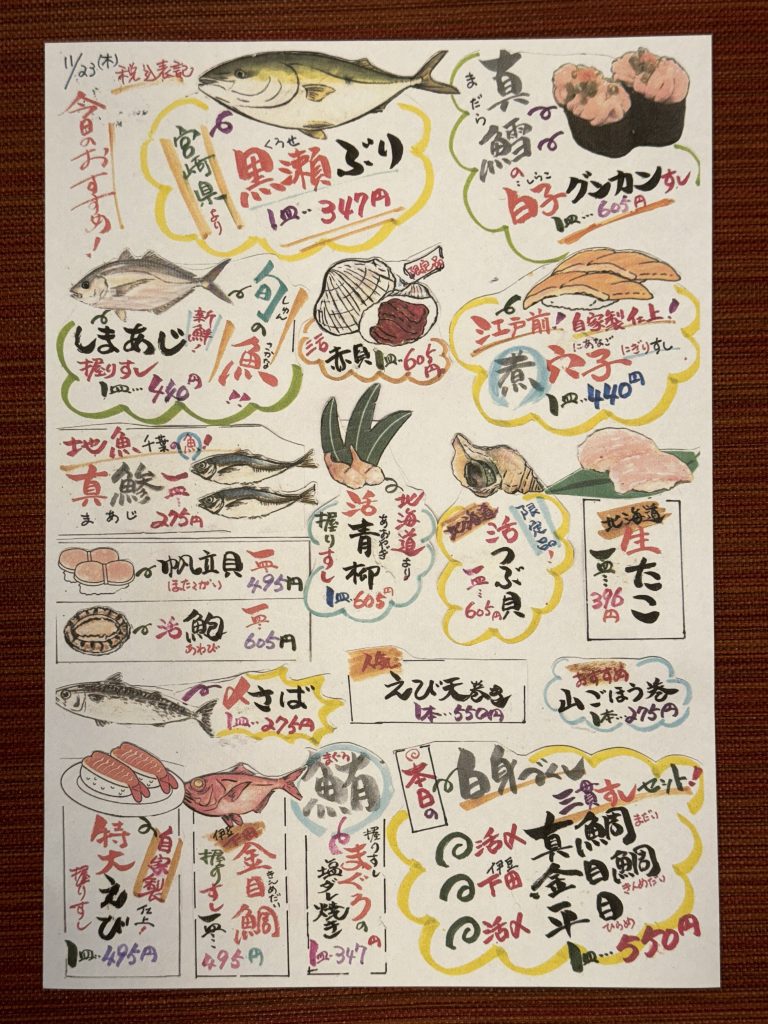 11/23(木)
税込表記
今日のおすすめ!
宮崎県より
くろせ
黒瀬ぶり
1皿…347円
まだら
真鱈の
しらこ
白子グンカンすし
1皿…605円
しまあじ
新鮮!
握りすし
1皿…440円
しゅん
旬の
さかな
魚!!
限定品
活赤貝1皿…605円
江戸前!自家製仕上!
にあなご
煮穴子にぎりすし
1皿…440円
地魚千葉の魚!
真鯵
まあじ
一皿…275円
北海道より
活青柳
あおやぎ
握りすし
1皿…605円
北海道
限定品!
活つぶ貝
一皿…605円
北海道
生たこ
一皿…396円
帆立貝
ほたてがい
一皿…495円
活鮑
あわび
一皿…605円
〆さば
1皿…275円
人気
えび天巻き
1本…550円
おすすめ
山ごぼう巻
1本…275円
自家製仕上!
特大えび
握りすし
1皿…495円
伊豆下田
金目鯛
きんめだい
握りすし
一皿…495円
まぐろ
鮪
握りすし
まぐろの
塩ダレ焼き
1皿…347円
本日の
白身づくし
三貫すしセット!
活〆真鯛
まだい
伊豆下田金目鯛
きんめだい
活〆平目
ひらめ
1皿…550円